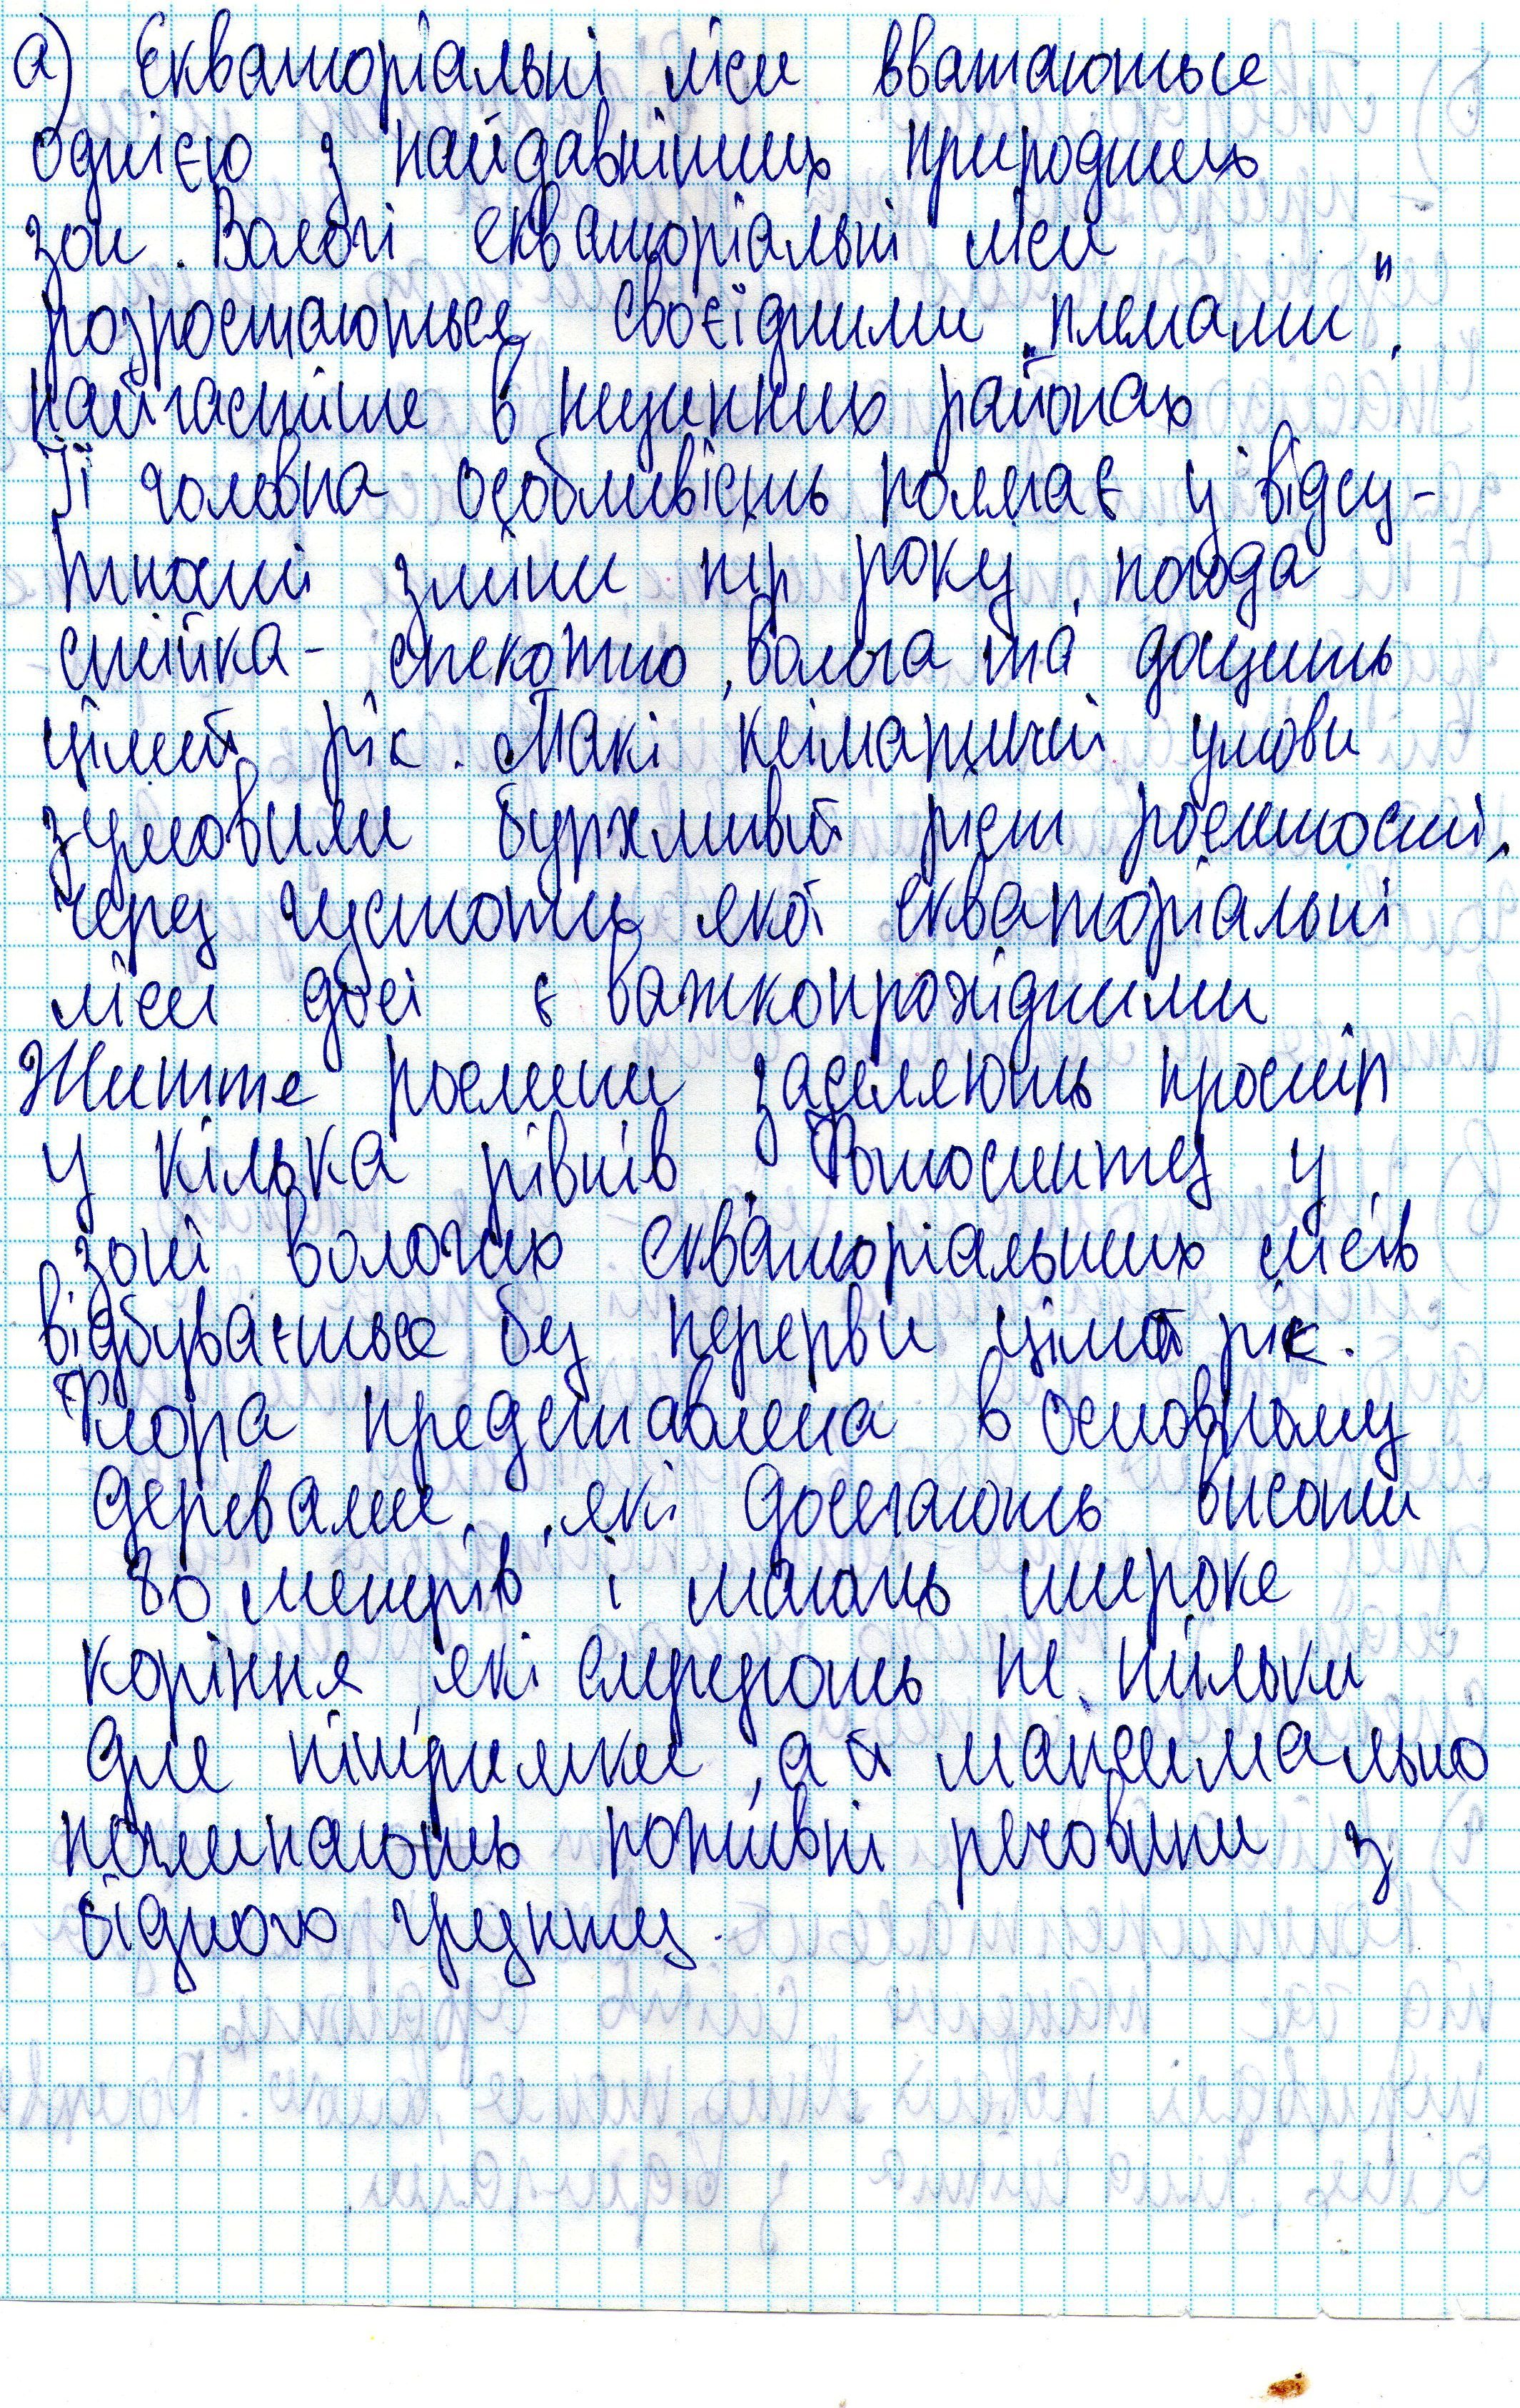 а) Екваторіальні ліси вважаються
однією з найдавніших природних
зон. Вологі екваторіальні ліси
розростаються своєрідними „плямами",
найчастіше в низинних районах
Її головна особливість полягає у відсу-
тності зміни пір року, погода
стійка - спекотно, волога та дощить
цілий рік. Такі кліматичні умови
зумовили бурхливий ріст рослинності,
через густоту якої екваторіальні
ліси досі є важкопрохідними
Життя рослини заселяють простір
у кілька рівнів. Фотосинтез у
зоні вологих екваторіальних лісів
відбувається без перерви цілий рік.
Флора представлена в основному
деревами, які досягають висоти
80 метрів і мають широке
коріння, які слугують не тільки
для підтримки, а й максимально
поглинають поживні речовини з
бідного грунту.